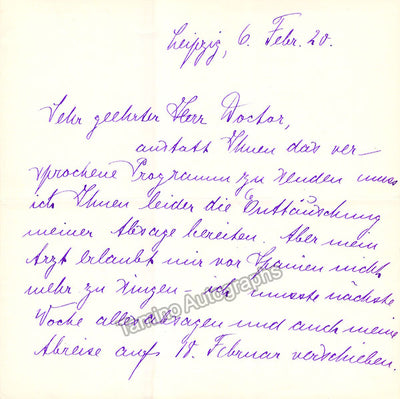 Leipzig, 6. Febr. 20.
Sehr geehrter Herr Doctor,
anstatt Ihnen das ver-
sprochene Programm zu senden muss
ich Ihnen leider die Enttäuschung
meiner Absage bereiten. Aber mein
Arzt erlaubt mir vor Spanien nicht
mehr zu singen - ich musste nächste
Woche alles absagen und auch meine
Abreise auf 18. Februar verschieben.
Tamino Autographs